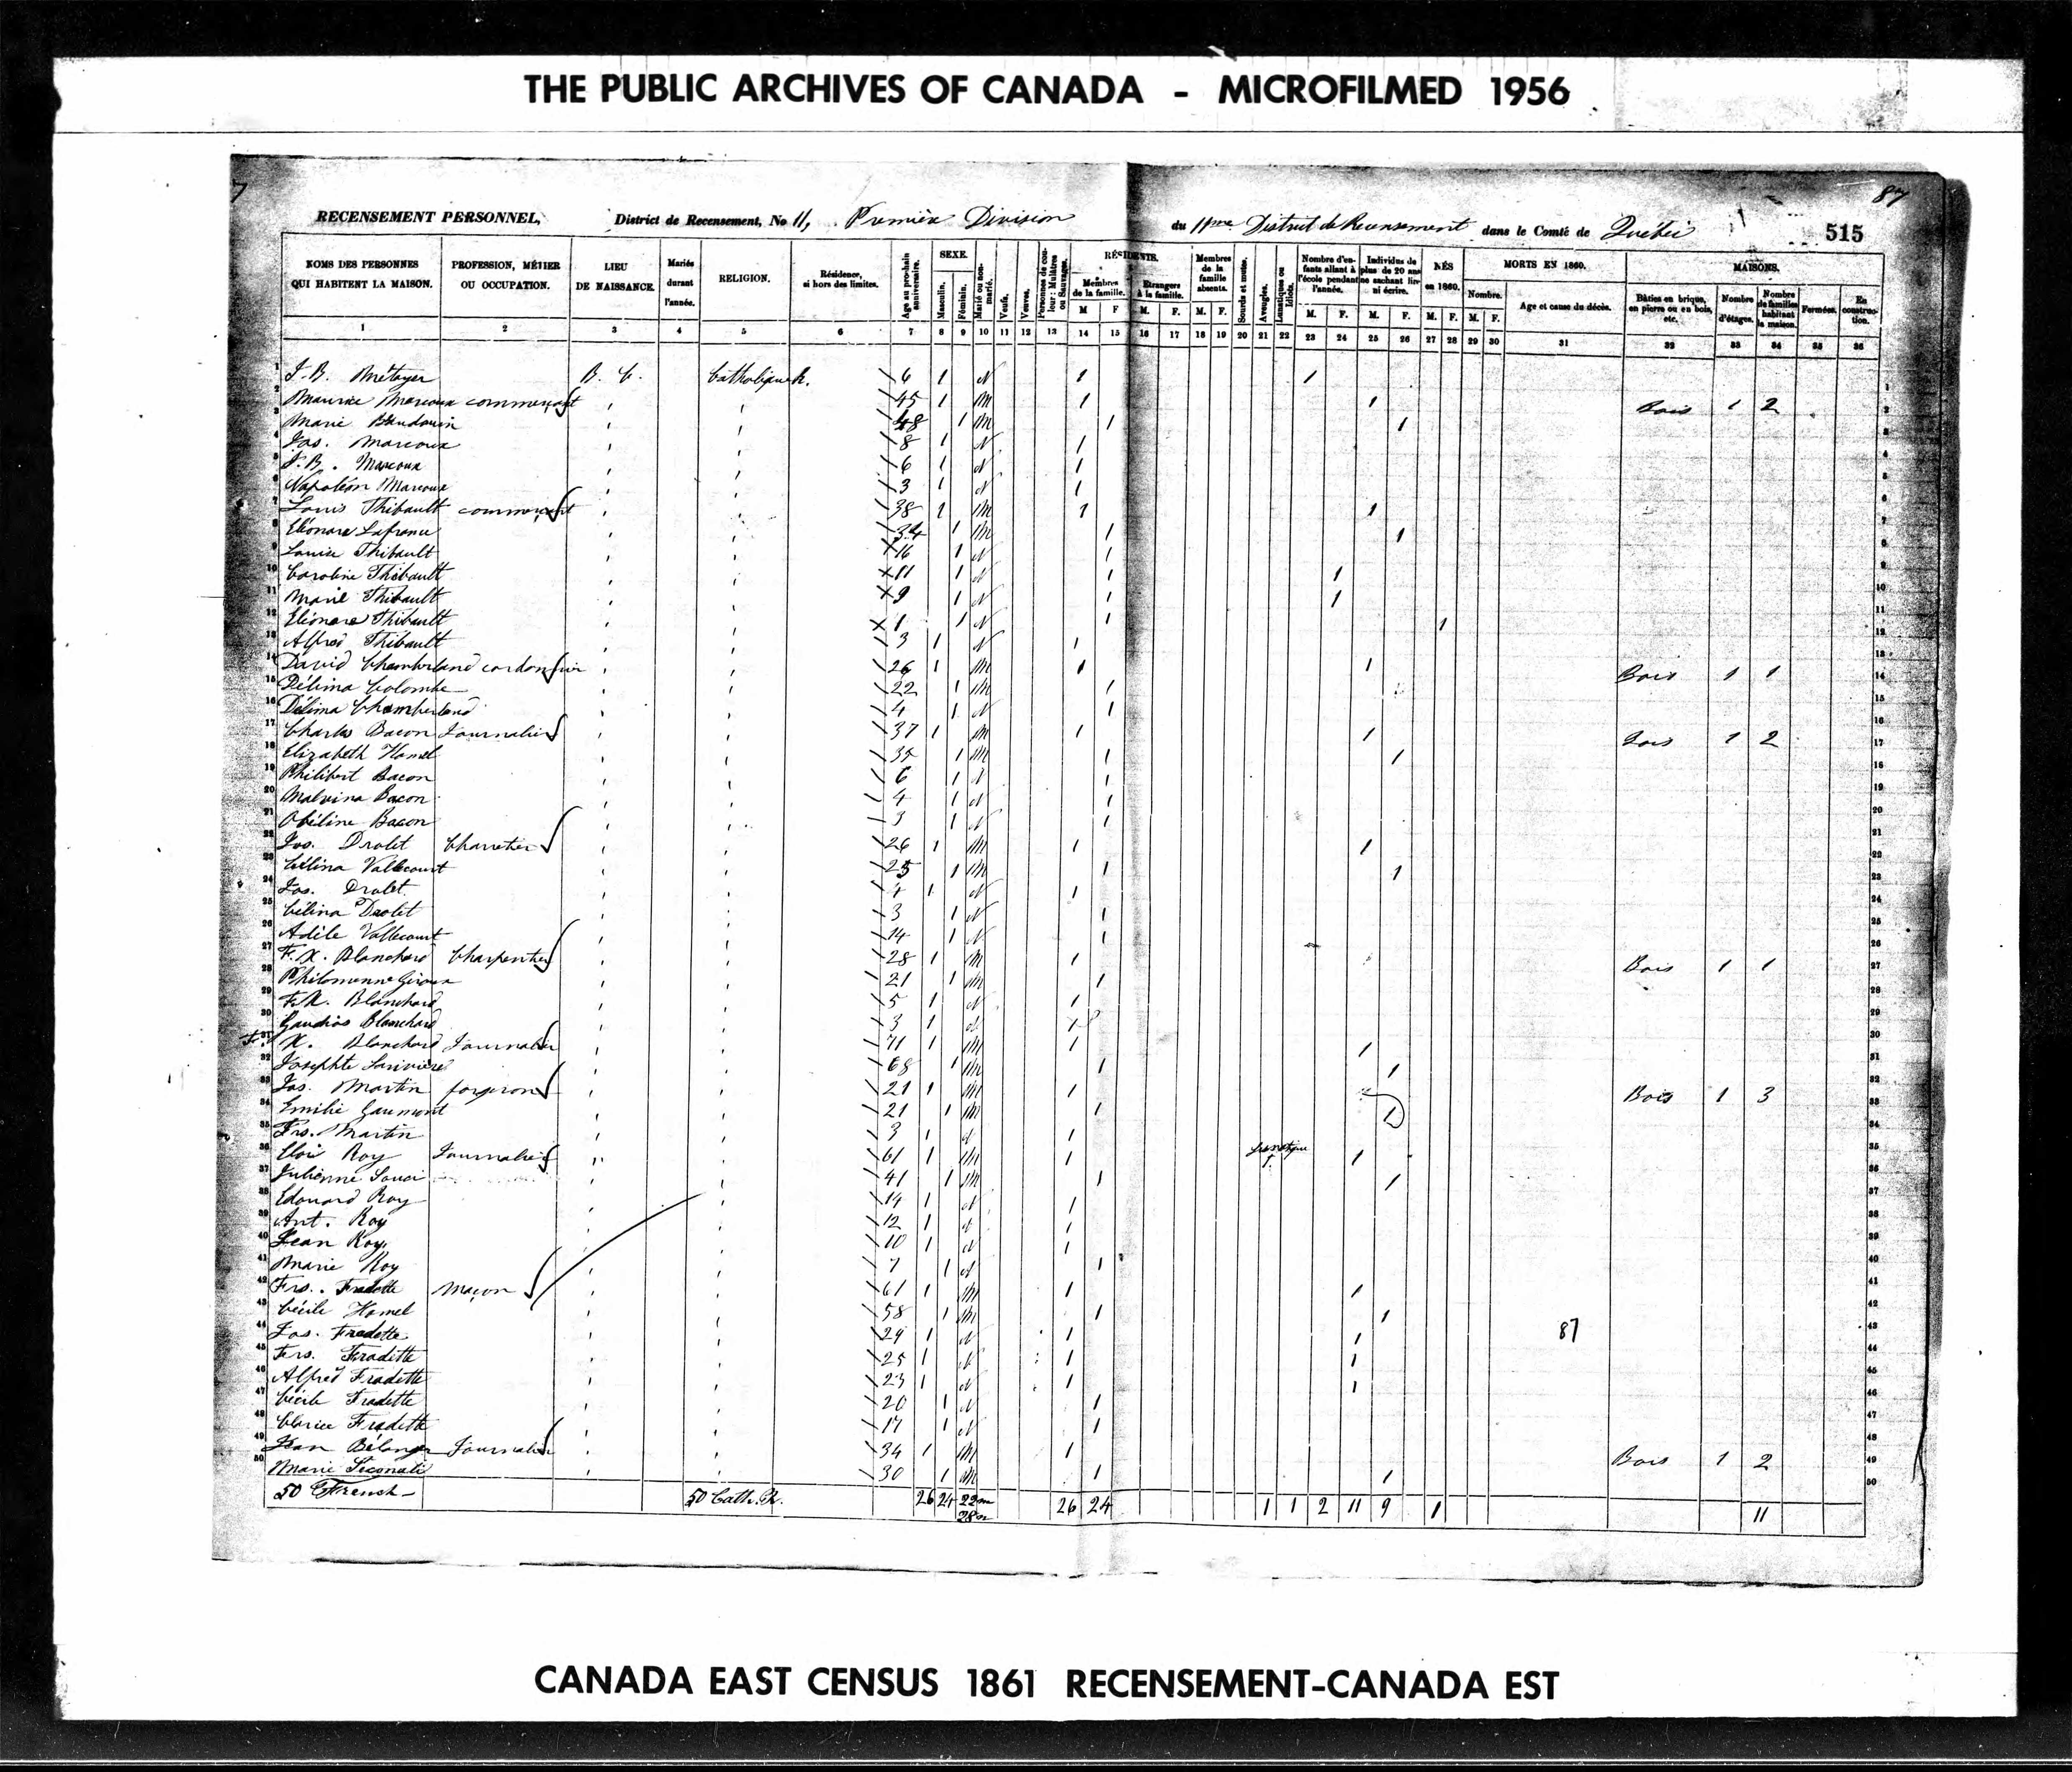 THE PUBLIC ARCHIVES OF CANADA - MICROFILMED 1956
87
RECENSEMENT PERSONNEL, District de Recensement, No 11, Première Division du 11me District de Recensement dans le Comté de Québec 515
NOMS DES PERSONNES QUI HABITENT LA MAISON. PROFESSION, MÉTIER OU OCCUPATION. LIEU DE NAISSANCE. Mariés durant l'année. RELIGION. Résidence, si hors des limites. Age au prochain anniversaire. SEXE. Masculin. Féminin. Marié ou non-marié. Veufs. Veuves. Personnes de couleur: Mulâtres ou Sauvages. RÉSIDENTS. Membres de la famille. M F Etrangers à la famille. M. F. Membres de la famille absents. M. F. Sourds et muets. Aveugles. Lunatiques ou Idiots. Nombre d'enfants allant à l'école pendant l'année. M. F. Individus de plus de 20 ans ne sachant lire ni écrire. M. F. NÉS en 1860. M. F. MORTS EN 1860. Nombre. M. F. Age et cause du décès. MAISONS. Bâties en brique, en pierre ou en bois, etc. Nombre d'étages. Nombre de familles habitant la maison. Fermées. En construction.
1 2 3 4 5 6 7 8 9 10 11 12 13 14 15 16 17 18 19 20 21 22 23 24 25 26 27 28 29 30 31 32 33 34 35 36
1 J. B. Métayer B. C. Catholique R. 6 1 N 1 1 1
2 Maurice Marcoux commerçant 45 1 M 1 1 Bois 1 2 2
3 Marie Baudouin 48 1 M 1 1 3
4 Jos. Marcoux 8 1 N 1 4
5 J. B. Marcoux 6 1 N 1 5
6 Napoléon Marcoux 3 1 N 1 6
7 Louis Thibault commerçant 38 1 M 1 1 7
8 Eléonare Lafrance 34 1 M 1 1 8
9 Louise Thibault 16 1 N 1 9
10 Caroline Thibault 11 1 N 1 1 10
11 Marie Thibault 9 1 N 1 1 11
12 Eléonare Thibault 1 1 N 1 1 12
13 Alfred Thibault 3 1 N 1 13
14 David Chamberland cordonnier 26 1 M 1 1 Bois 1 1 14
15 Délima Colombe 22 1 M 1 15
16 Délima Chamberland 4 1 N 1 16
17 Charles Bacon Journalier 37 1 M 1 1 Bois 1 2 17
18 Elizabeth Hamel 35 1 M 1 1 18
19 Philibert Bacon 6 1 N 1 19
20 Malvina Bacon 4 1 N 1 20
21 Obéline Bacon 3 1 N 1 21
22 Jos. Drolet Charretier 26 1 M 1 1 22
23 Célina Vallecourt 25 1 M 1 1 23
24 Jos. Drolet 4 1 N 1 24
25 Célina Drolet 3 1 N 1 25
26 Adèle Vallecourt 14 1 N 1 26
27 F. X. Blanchard Charpentier 28 1 M 1 Bois 1 1 27
28 Philomenne Giroux 21 1 M 1 28
29 F. X. Blanchard 5 1 N 1 29
30 Gaudias Blanchard 3 1 N 1 30
31 F. X. Blanchard Journalier 71 1 M 1 1 31
32 Josephte Larivière 68 1 M 1 1 32
33 Jos. Martin forgeron 21 1 M 1 Bois 1 3 33
34 Emilie Gaumont 21 1 M 1 1 34
35 Frs. Martin 3 1 N 1 35
36 Eloi Roy Journalier 61 1 M 1 1 1 36
37 Julienne 41 1 M 1 1 37
38 Edouard Roy 14 1 N 1 38
39 Ant. Roy 12 1 N 1 39
40 Jean Roy 10 1 N 1 40
41 Marie Roy 7 1 N 1 41
42 Frs. Fradette Maçon 61 1 M 1 1 42
43 Cécile Hamel 58 1 M 1 1 87 43
44 Jos. Fradette 29 1 N 1 1 44
45 Frs. Fradette 25 1 N 1 1 45
46 Alfred Fradette 23 1 N 1 1 46
47 Cécile Fradette 20 1 N 1 47
48 Clarice Fradette 17 1 N 1 48
49 Jean Bélanger Journalier 34 1 M 1 Bois 1 2 49
50 Marie 30 1 M 1 1 50
50 French - 50 Cath. R. 26 24 22m 28n 26 24 1 1 2 11 9 1 11
CANADA EAST CENSUS 1861 RECENSEMENT-CANADA EST